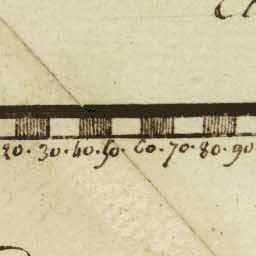 20. 30. 40. 50. 60. 70. 80. 90